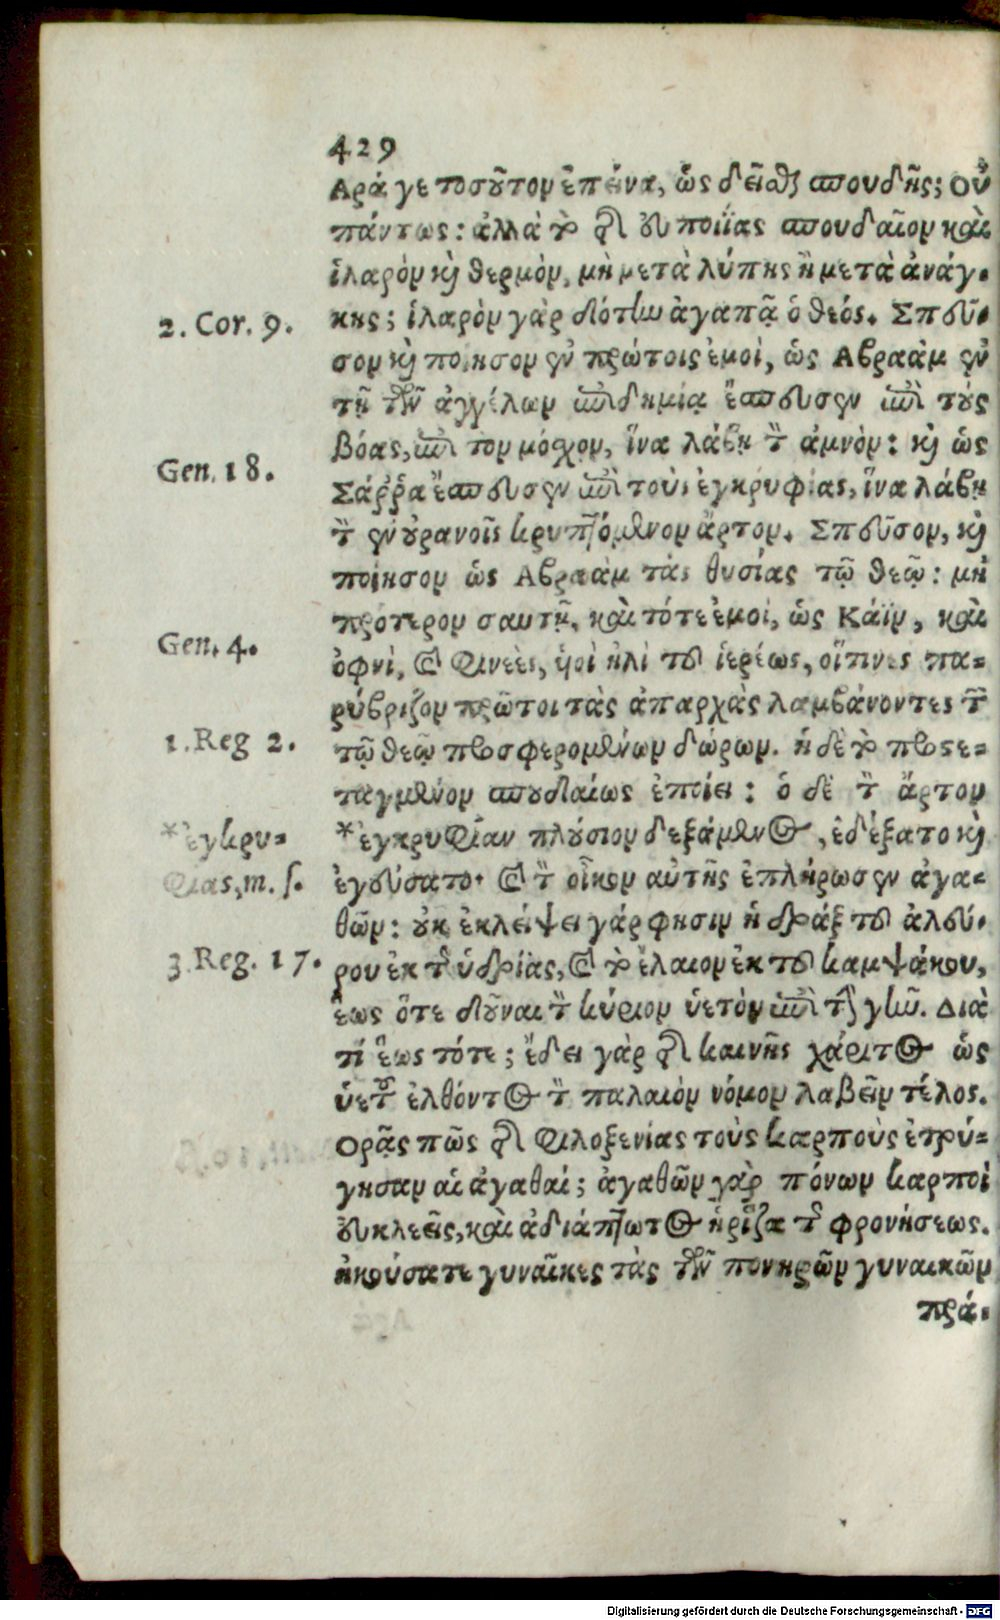 429
Αρά γε τοσοῦτον ἐπείνα, ὡς δεῖσθαι σπουδῆς; Οὐ
πάντως: ἀλλὰ τὸ τῆς εὐποιΐας σπουδαῖον καὶ
ἱλαρὸν καὶ θερμὸν, μὴ μετὰ λύπης ἢ μετὰ ἀνάγ-
2. Cor. 9.
κης; ἱλαρὸν γὰρ δότην ἀγαπᾷ ὁ θεός. Σπεῦ-
σον καὶ ποίησον ἐν πρώτοις ἐμοὶ, ὡς Αβραὰμ ἐν
τῇ τῶν ἀγγέλων ἐπιδημίᾳ ἔσπευσεν ἐπὶ τοὺς
βόας, ἐπὶ τὸν μόσχον, ἵνα λάβῃ τὸν ἀμνὸν: καὶ ὡς
Gen. 18.
Σάῤῥα ἔσπευσεν ἐπὶ τοὺς ἐγκρυφίας, ἵνα λάβῃ
τὸν ἐν οὐρανοῖς κρυπτόμενον ἄρτον. Σπεῦσον, καὶ
ποίησον ὡς Αβραὰμ τὰς θυσίας τῷ θεῷ: μὴ
πρότερον σαυτῇ, καὶ τότε ἐμοὶ, ὡς Κάϊν, καὶ
Gen. 4.
ὀφνὶ, καὶ Φινεὲς, υἱοὶ ἠλὶ τοῦ ἱερέως, οἵτινες πα-
ρύβριζον πρῶτοι τὰς ἀπαρχὰς λαμβάνοντες τῶν
1. Reg 2.
τῷ θεῷ προσφερομένων δώρων. ἡ δὲ τὸ προςε-
ταγμένον σπουδαίως ἐποίει: ὁ δὲ τὸν ἄρτον
*ἐγκρυ-
*ἐγκρυφίαν πλούσιον δεξάμενος, ἐδέξατο καὶ
φίας, m. ſ.
ἐγεύσατο. καὶ τὸν οἶκον αὐτῆς ἐπλήρωσεν ἀγα-
θῶν: οὐκ ἐκλείψει γάρ φησιν ἡ δρὰξ τοῦ ἀλεύ-
3. Reg. 17.
ρου ἐκ τῆς ὑδρίας, καὶ τὸ ἔλαιον ἐκ τοῦ καμψάκου,
ἕως ὅτε δοῦναι τὸν κύριον ὑετὸν ἐπὶ τὴν γῆν. Διὰ
τί ἕως τότε; ἔδει γὰρ τῆς καινῆς χάριτος ὡς
ὑετοῦ ἐλθόντος τὸν παλαιὸν νόμον λαβεῖν τέλος.
Ορᾷς πῶς τῆς φιλοξενίας τοὺς καρποὺς ἐτρύ-
γησαν αἱ ἀγαθαί; ἀγαθῶν γὰρ πόνων καρποὶ
εὐκλεεῖς, καὶ ἀδιάπτωτος ἡ ῥίζα τῆς φρονήσεως.
ἠκούσατε γυναῖκες τὰς τῶν πονηρῶν γυναικῶν
πρά-
Digitalisierung gefördert durch die Deutsche Forschungsgemeinschaft - DFG